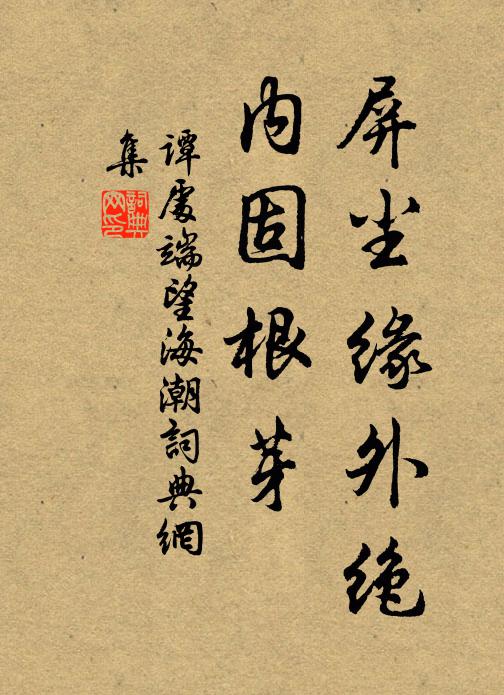 屏尘缘外绝
内固根芽
谭处端望海潮詞典網
集
詞典
网印